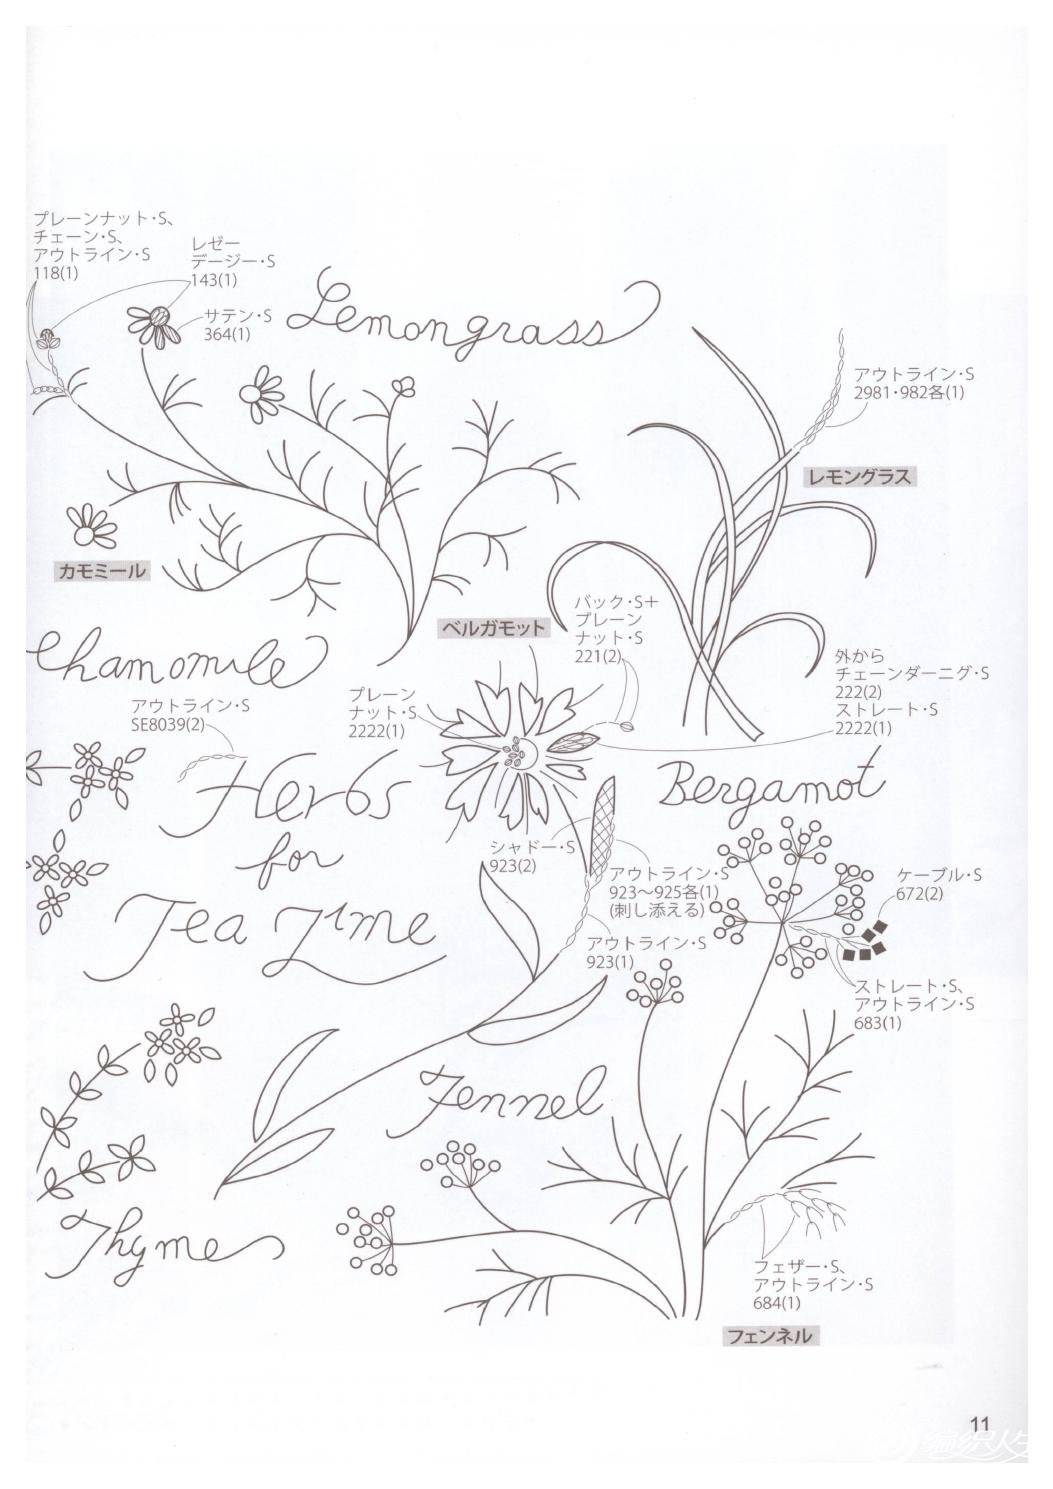 プレーンナット・S、
チェーン・S、
アウトライン・S
118(1)
レゼー
デージー・S
143(1)
サテン・S
364(1)
Lemongrass
アウトライン・S
2981・982各(1)
レモングラス
カモミール
ベルガモット
バック・S+
プレーン
ナット・S
221(2)
Chamomile
外から
チェーンダーニグ・S
222(2)
ストレート・S
2222(1)
アウトライン・S
SE8039(2)
プレーン
ナット・S
2222(1)
Herbs
for
Tea Time
Bergamot
シャドー・S
923(2)
アウトライン・S
923〜925各(1)
(刺し添える)
アウトライン・S
923(1)
ケーブル・S
672(2)
ストレート・S、
アウトライン・S
683(1)
Fennel
Thyme
フェザー・S、
アウトライン・S
684(1)
フェンネル
11
编织人生